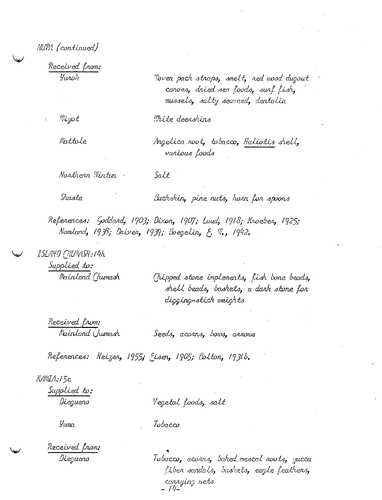 HUPA (continued)
Received from:
Yurok Woven pack straps, smelt, red wood dugout
canoes, dried sea foods, surf fish,
mussels, salty seaweed, dentalia
Wiyot White deerskins
Mattole Angelica root, tobacco, Haliotis shell,
various foods
Northern Wintun Salt
Shasta Buckskin, pine nuts, horn for spoons
References: Goddard, 1903; Dixon, 1907; Loud, 1918; Kroeber, 1925;
Nomland, 1938; Driver, 1939; Voegelin, E. W., 1942.
ISLAND CHUMASH:14h
Supplied to:
Mainland Chumash Chipped stone implements, fish bone beads,
shell beads, baskets, a dark stone for
digging-stick weights
Received from:
Mainland Chumash Seeds, acorns, bows, arrows
References: Heizer, 1955; Eisen, 1905; Bolton, 1931b.
KAMIA:15c
Supplied to:
Diegueno Vegetal foods, salt
Yuma Tobacco
Received from:
Diegueno Tobacco, acorns, baked mescal roots, yucca
fiber sandals, baskets, eagle feathers,
carrying nets
-14-